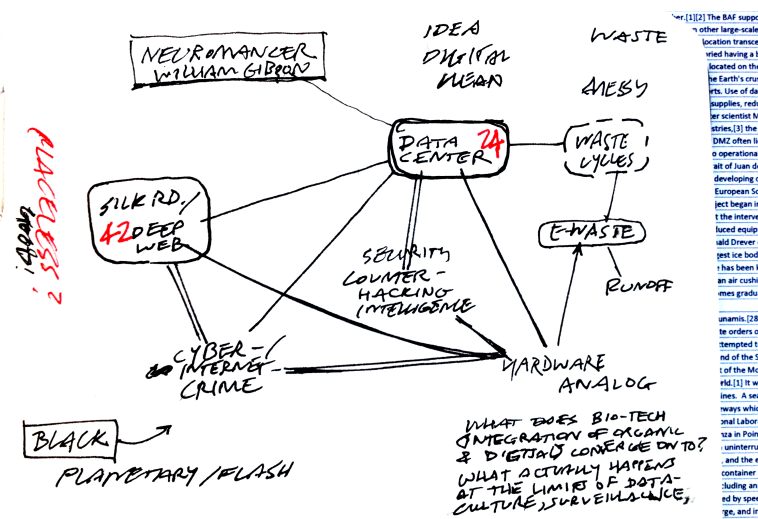 NEUROMANCER
WILLIAM GIBSON
IDEA
DIGITAL
CLEAN
WASTE
MESSY
DATA
CENTER
24
WASTE
CYCLES
E-WASTE
RUNOFF
SILK RD./
42 DEEP
WEB
PLACELESS?
SECURITY
COUNTER-
HACKING
INTELLIGENCE
CYBER-/
INTERNET-
CRIME
HARDWARE
ANALOG
BLACK
PLANETARY/FLASH
WHAT DOES BIO-TECH
INTEGRATION OF ORGANIC
& DIGITAL CONVERGE ON TO?
WHAT ACTUALLY HAPPENS
AT THE LIMITS OF DATA-
CULTURE, SURVEILLANCE,
ner.[1][2] The BAF suppo
other large-scale
location transce
ried having a b
located on the
he Earth's crus
rts. Use of da
supplies, redu
er scientist M
stries,[3] the
DMZ often li
o operationa
ait of Juan d
developing
European So
ject began i
t the interve
luced equip
ald Drever
gest ice bod
e has been
an air cushi
omes gradu
unamis.[28
te orders o
ttempted t
nd of the S
t of the Mo
rld.[1] It w
ines. A sea
ways whic
onal Labor
nza in Poin
uninterru
, and the e
container
cluding an
ed by spee
rge, and in